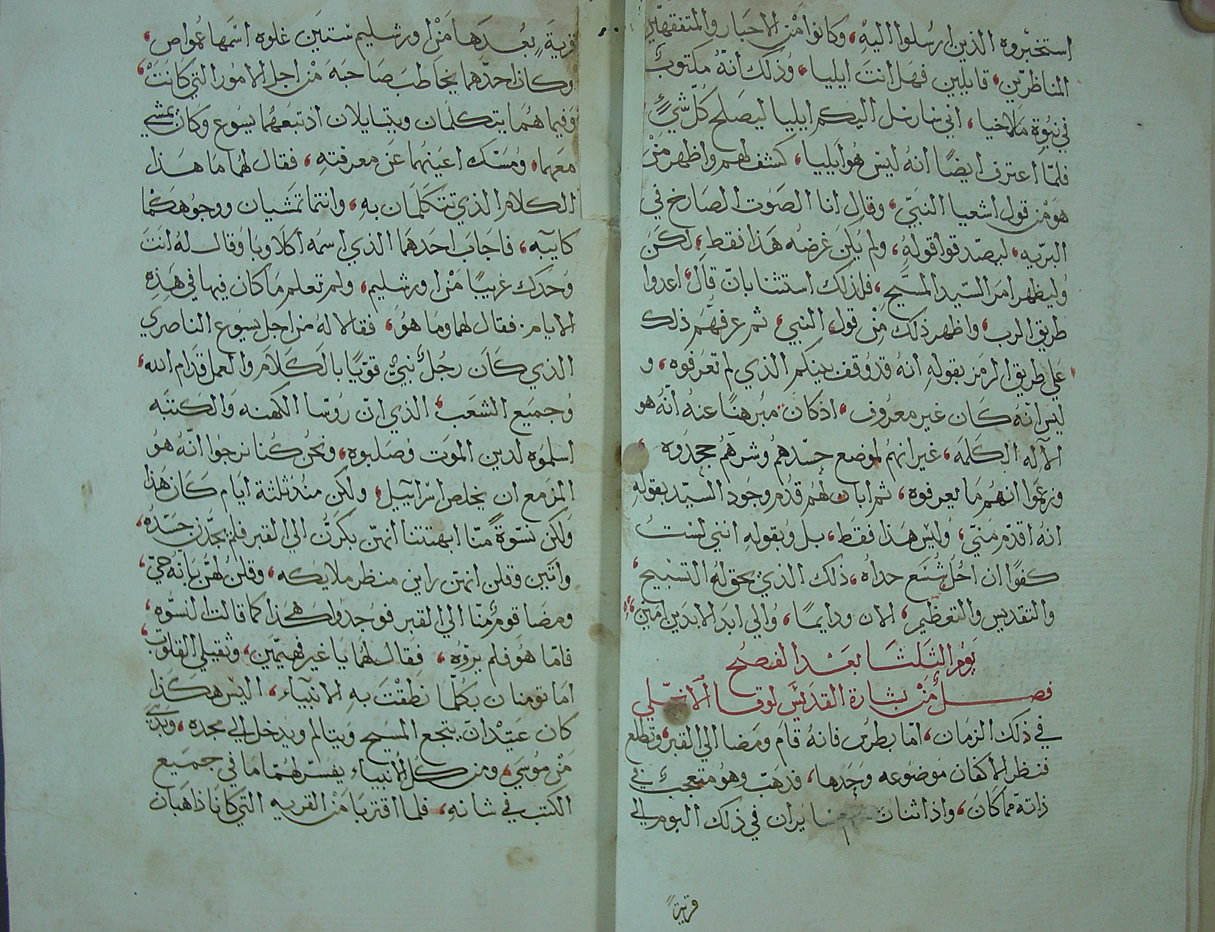 استخبروه الذين ارسلوا اليه، وكانوا من الاحبار والمتفقهين
المناظرين، قايلين فهل انت ايليا، وذلك انه مكتوب
في نبوة ملاخيا، اني سارسل اليكم ايليا ليصلح كل شيء
فلما اعترف ايضًا انه ليس هو ايليا، كشف لهم واظهر من
هو من قول اشعيا النبي، وقال انا الصوت الصارخ في
البريه، ليصدقوا قوله، ولم يكن غرضه هذا فقط، لكن
وليظهر امر السيد المسيح، فلذلك استثنا بان قال اعدوا
طريق الرب، واظهر ذلك من قول النبي، ثم عرفهم ذلك
على طريق الرمز بقوله انه قد وقف بينكم الذي لم تعرفوه، و
ليس انه كان غير معروف، اذ كان مبرهنًا عنه انه هو
الآله الكلمه، غير انهم لموضع حسدهم وشرهم جحدوه
وزعموا انهم ما يعرفوه، ثم ابان لهم قدم وجود السيد بقوله
انه اقدم مني، وليس هذا فقط، بل وبقوله انني لست
كفوًا ان احل شسع حذاه، ذلك الذي يحق له التسبيح
والتقديس والتعظيم، الان ودايمًا، والى ابد الابدين امين
يوم الثلثا بعد الفصح
فصل من بشارة القديس لوقا الانجيلي
في ذلك الزمان، اما بطرس فانه قام ومضا الي القبر وتطلع
فنظر الاكفان موضوعه وحدها، فذهب وهو متعجب في
ذاته مما كان، واذا اثنان سايران في ذلك اليوم الي
قرية
قرية، بعدها من اورشليم ستين غلوه اسمها عمواص،
وكان احدهما يخاطب صاحبه من اجل الامور التي كانت،
وفيما هما يتكلمان ويتسايلان اذ تبعهما يسوع وكان يمشي
معهما، ومسك اعينهما عن معرفته، فقال لهما ما هذا
الكلام الذي تتكلمان به، وانتما تمشيان ووجوهكما
كايبه، فاجاب احدهما الذي اسمه اكلاوبا وقال له انت
وحدك غريبًا من اورشليم، ولم تعلم ما كان فيها في هذه
الايام. فقال لهما وما هو، فقالا له من اجل يسوع الناصري
الذي كان رجل نبي قويًا بالكلام والعمل قدام الله،
وجميع الشعب، الذي ان روسا الكهنه والكتبه
اسلموه لدين الموت وصلبوه، ونحن كنا نرجوا انه هو
المزمع ان يخلص اسراييل، ولكن منذ ثلثة ايام كان هذا
ولكن نسوة منا ابهتننا انهن بكرن الي القبر فلم يجدن جسده،
واتين وقلن انهن راين منظر ملايكه، وقلن لهن بانه حي،
ومضا قوم منا الي القبر فوجدوا هكذا كما قالت النسوه،
فاما هو فلم يروه، فقال لهما يا غير فهيمين، وثقيلي القلوب،
اما تومنان بكلما نطقت به الانبياء، اليس هكذا
كان عتيدًا ان يتجع المسيح ويتالم ويدخل الي مجده، وبدى
من موسى، ومن كل الانبياء يفسر لهما ما في جميع
الكتب في شانه، فلما اقتربا من القريه التي كانا ذاهبان